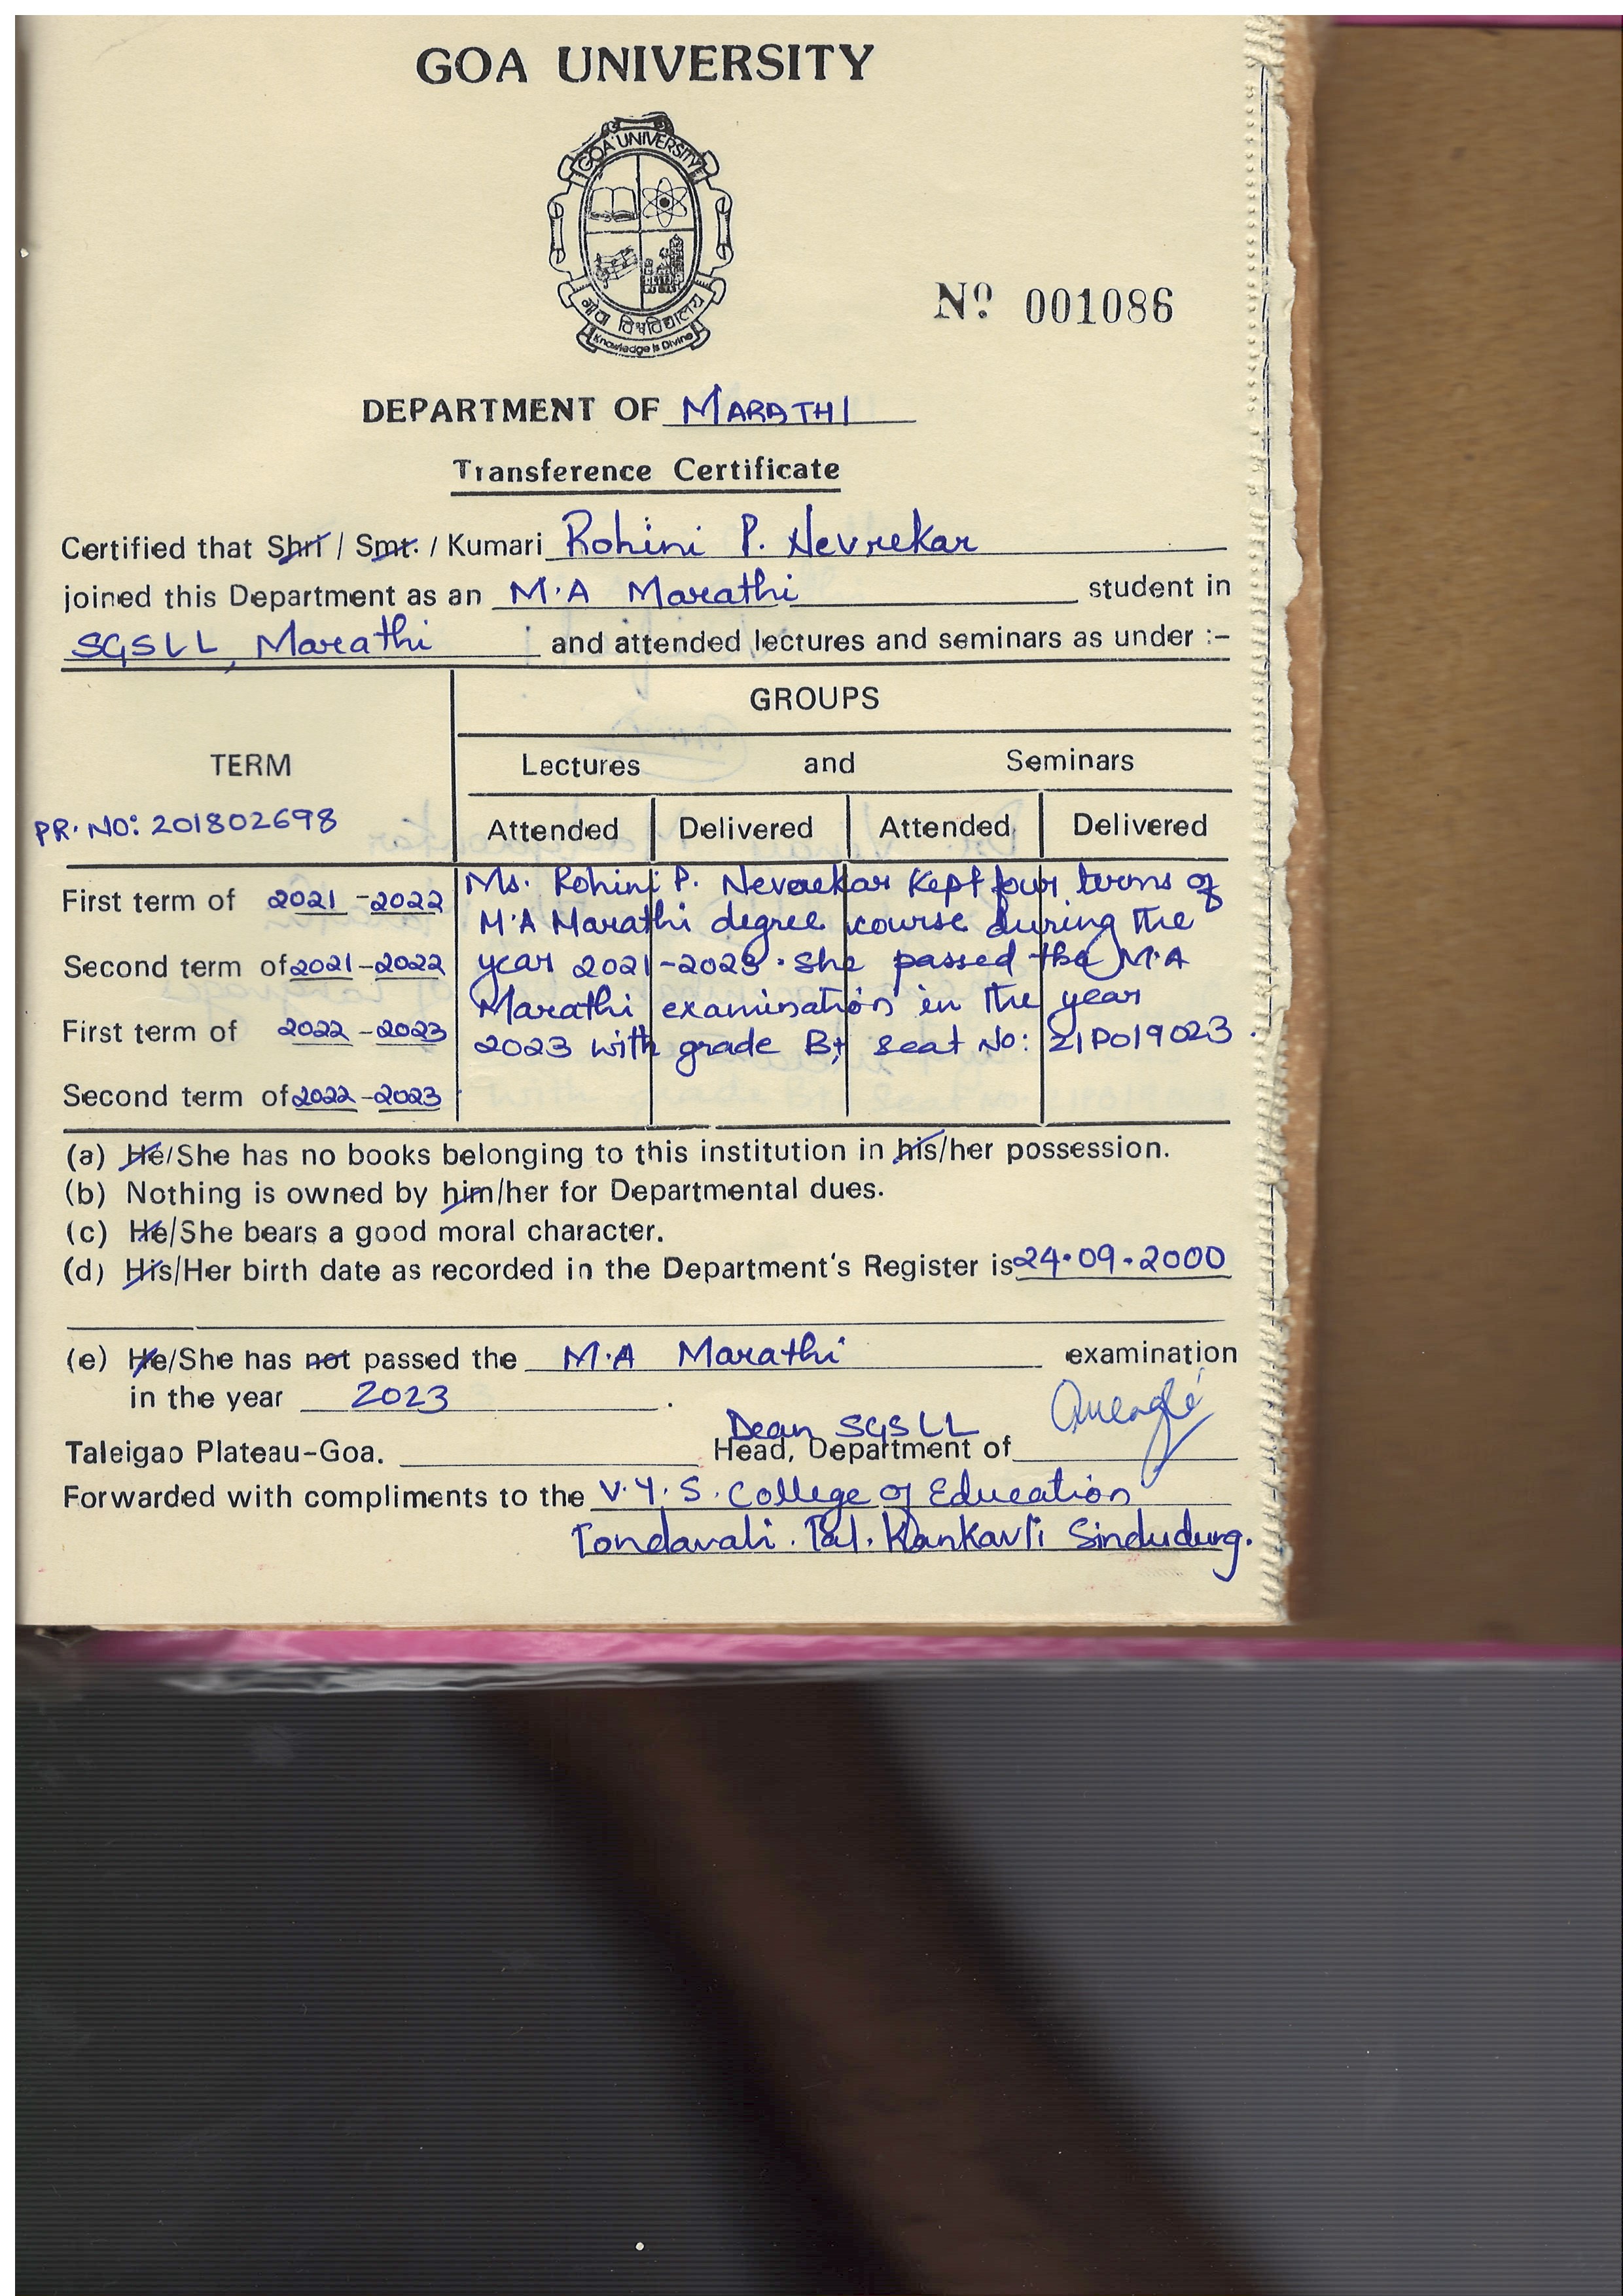 GOA UNIVERSITY
GOA UNIVERSITY
गोवा विश्वविद्यालय
Knowledge is Divine
Nº 001086
DEPARTMENT OF MARATHI
Transference Certificate
Certified that Shri / Smt. / Kumari Rohini P. Nevrekar
joined this Department as an M.A Marathi student in
SGSLL, Marathi and attended lectures and seminars as under :-
GROUPS
TERM
Lectures and Seminars
PR. NO: 201802698
Attended Delivered Attended Delivered
First term of 2021-2022
Ms. Rohini P. Nevrekar Kept four terms of
M.A Marathi degree course during the
Second term of 2021-2022
year 2021-2023. She passed the M.A
Marathi examination in the year
First term of 2022-2023
2023 with grade B+ seat No: 21P019023.
Second term of 2022-2023
(a) He/She has no books belonging to this institution in his/her possession.
(b) Nothing is owned by him/her for Departmental dues.
(c) He/She bears a good moral character.
(d) His/Her birth date as recorded in the Department's Register is 24.09.2000
(e) He/She has not passed the M.A Marathi examination
in the year 2023.
Dean SGSLL
Taleigao Plateau-Goa. Head, Department of
Forwarded with compliments to the V.Y.S. College of Education
Tondavali. Tal. Kankavli Sindudurg.